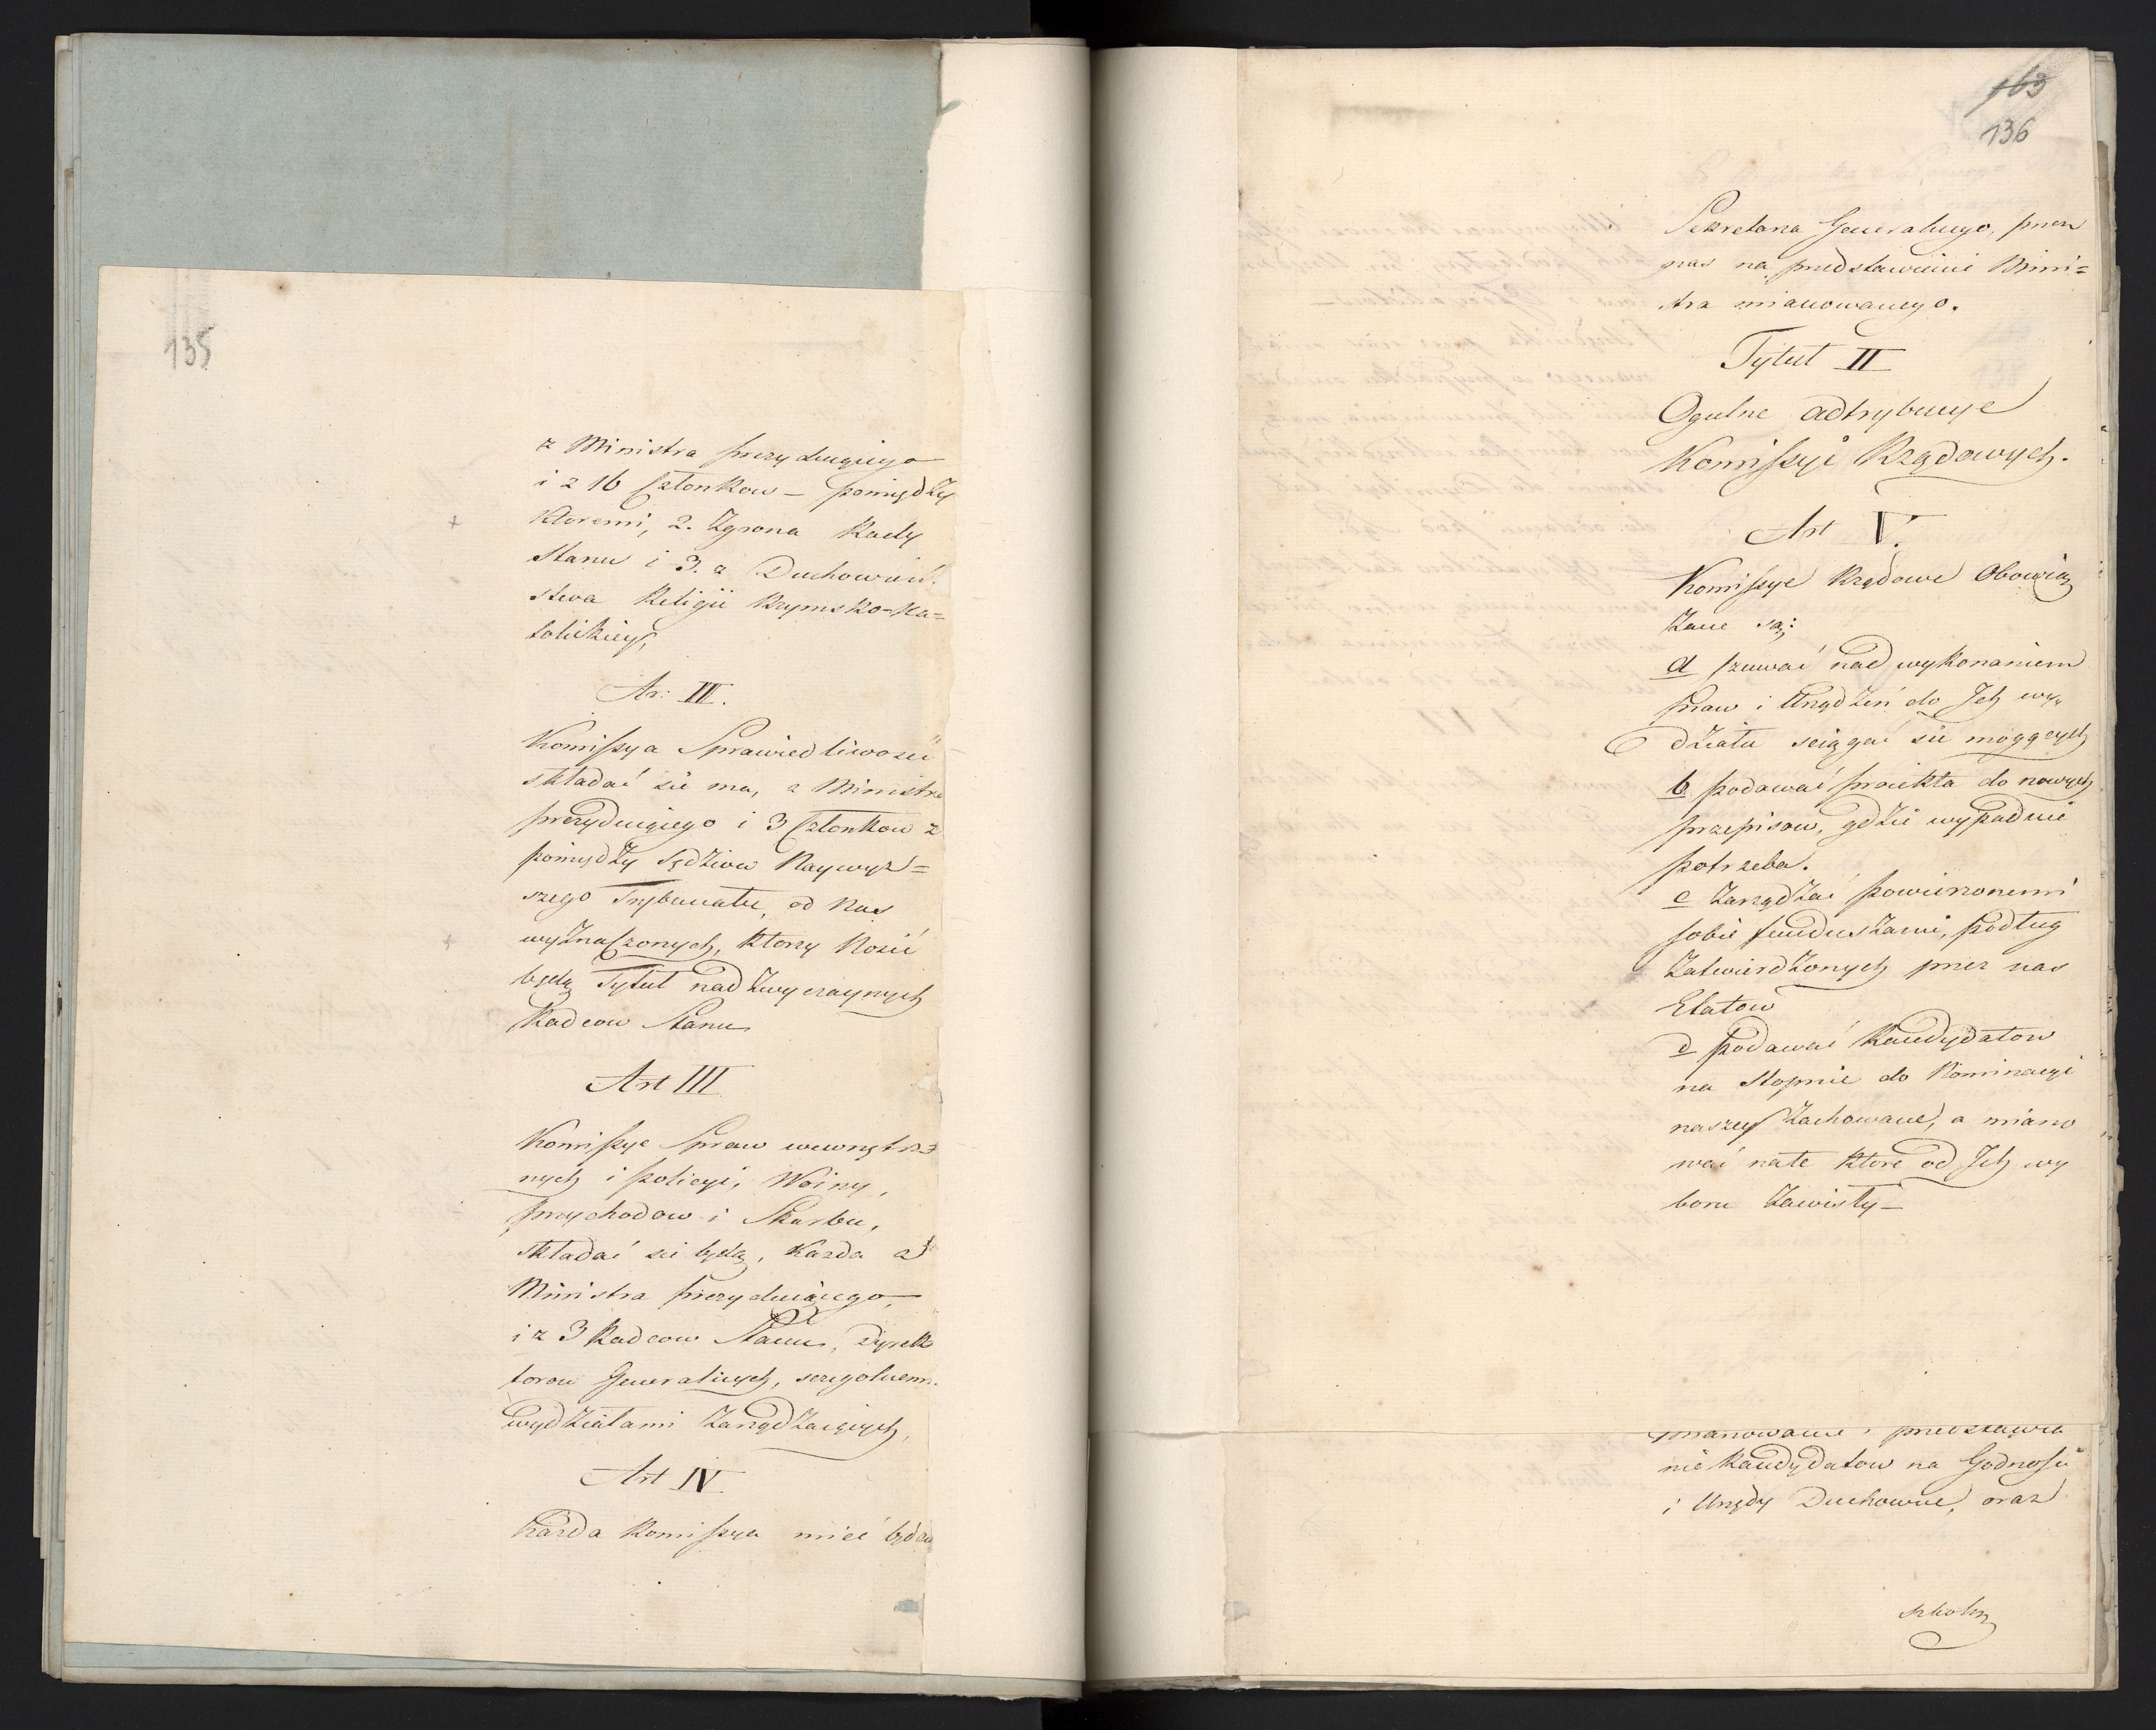 135
z Ministra prezyduiącego
i z 16 Członkow – pomiędzy
ktoremi, 2. Zgrona Rady
Stanu i 3. z Duchowień-
stwa Religii Rzymsko=Ka=
tolickiey,
Ar: III.
Komissya Sprawiedliwosci
składać się ma, z Ministra
prezyduiącego i 3 Członkow z
pomiędzy Sędziow Naywyż=
szego Trybunału, od Nas
wyznaczonych, ktorzy Nosić
będą Tytuł nadzwyczaynych
Radcow Stanu
Art III
Komissye Spraw wewnętrz
nych i policyi, Woiny,
przychodow i Skarbu,
składać się będą, Każda z
Ministra prezyduiącego,
i z 3 Radcow Stanu, Dyrek
torow Generalnych, szczegolnemi
wydziałami Zarządzaiących,
Art IV
Każda Komissya mieć będzie
163
136
Sekretarza Generalnego, przez
nas na przedstawienie Mini=
stra mianowanego.
Tytuł II
Ogulne adtrybucye
Komissyi Rządowych.
Art V.
Komissye Rządowe Obowią
Zane są:
a Czuwać nad wykonaniem
praw i Urządzeń do Ich wy
działu sciągać się mogących
b podawać proiekta do nowych
przepisow, gdzie wypadnie
potrzeba.
c Zarządzać powierzonemi
sobie funduszami, podług
Zatwierdzonych przez nas
Etatow
d podawać Kandydatow
na stopnie do Nominacyi
naszey Zachowane, a miano
wać na te ktore od Ich wy
boru Zawisły –
mianowanie i przedstawia
nie Kandydatow na Godnosci
i Urzędy Duchowne, oraz
szkolny